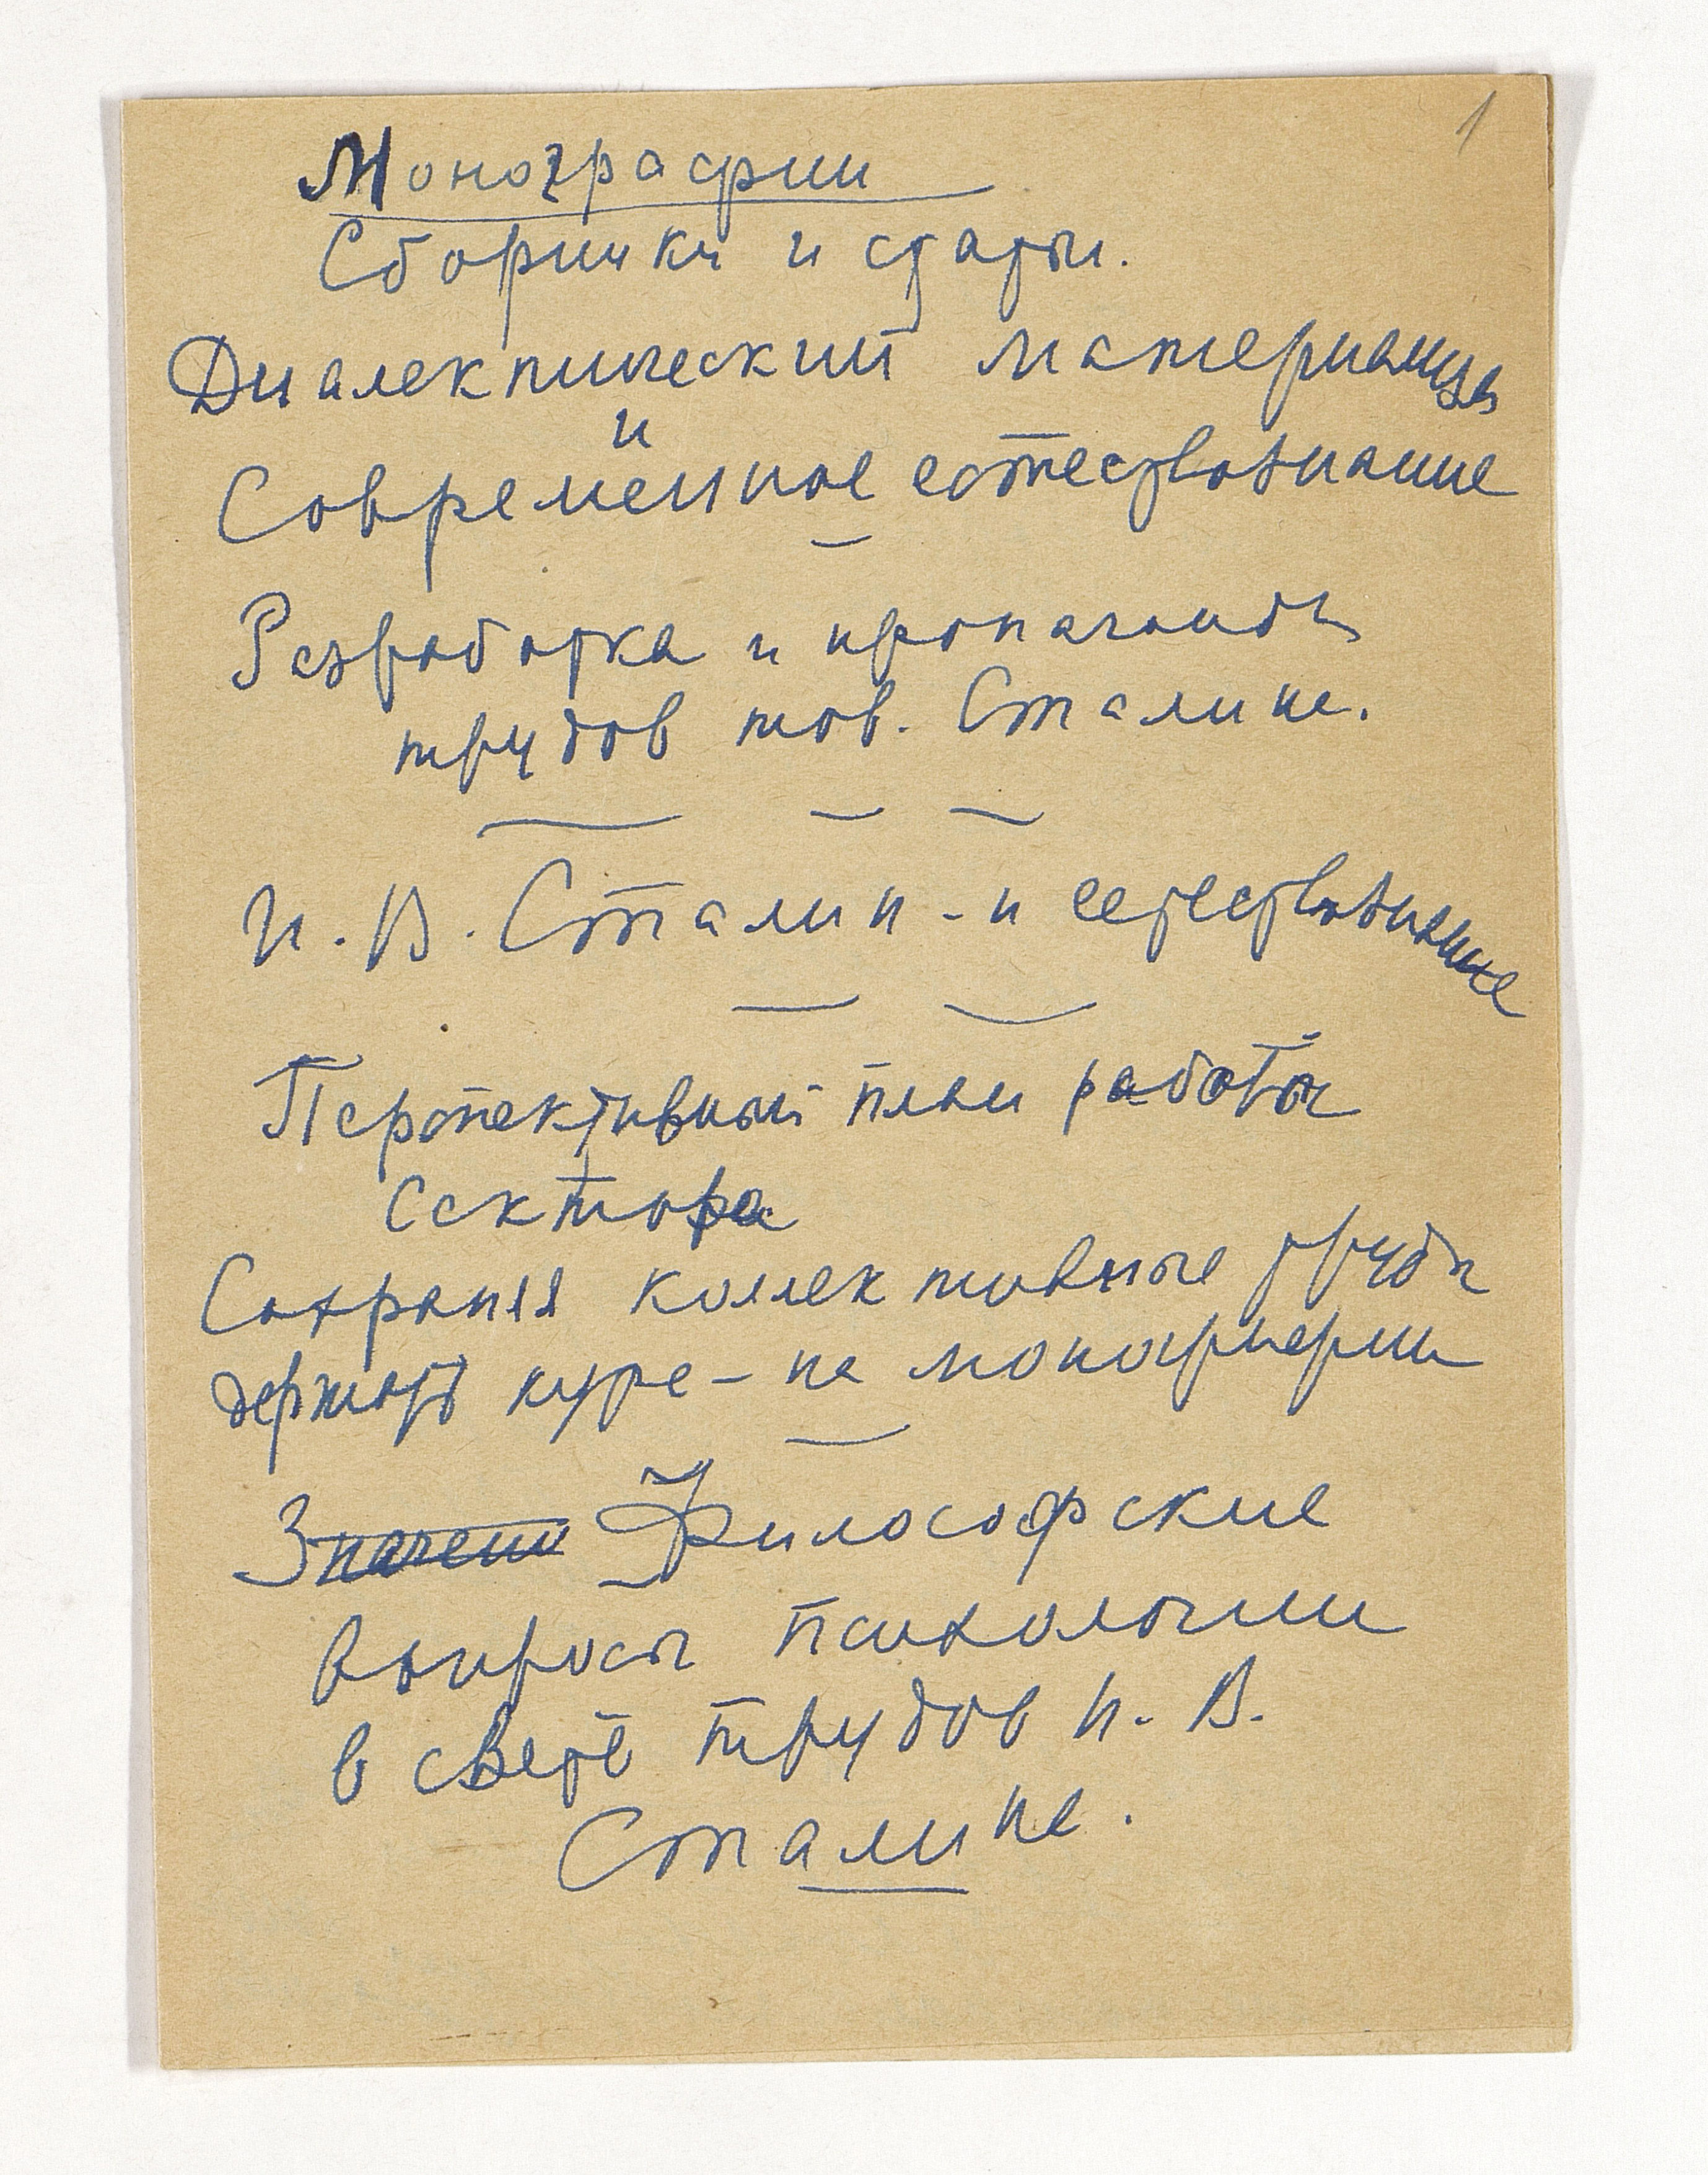 1
Монографии
Сборники и статьи.
Диалектический материализм
и
Современное естествознание
Разработка и пропаганда
трудов тов. Сталина.
И. В. Сталин - и естествознание
Перспективный план работы
Сектора
Сохраняя коллективные труды
держать курс - на монографии
Значени Философские
вопросы психологии
в свете трудов И. В.
Сталина.